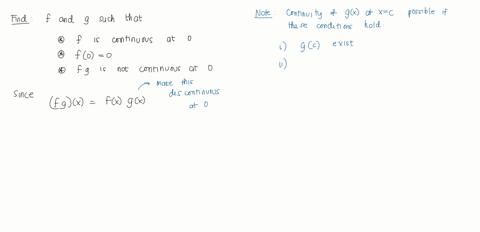 Find: f and g such that
f is continuous at 0
f(0) = 0
fg is not continuous at 0
Since (fg)(x) = f(x) g(x)
make this
discontinuous
at 0
Note Continuity of g(x) at x=c possible if
these conditions hold
i) g(c) exist
ii)